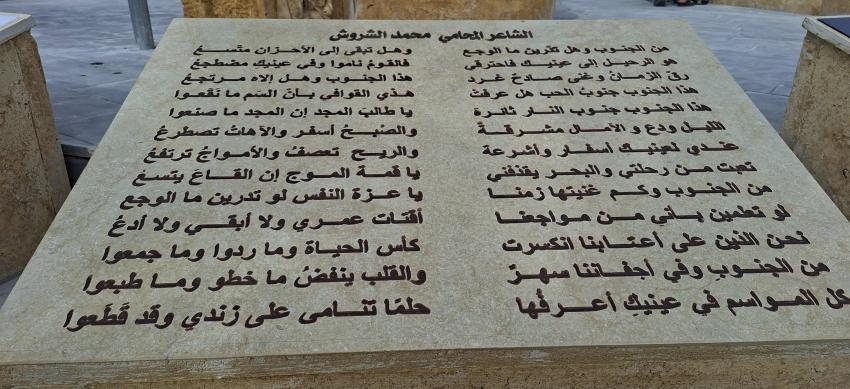 الشاعر المحامي محمد الشروش
من الجنوب وهل تدرين ما الوجع وهل تبقى إلى الأحزان متسع
هو الرحيل إلى عينيك فاحترقي فالقوم ناموا وفي عينيك مضطجع
رق الزمان وغنى صادح غرد هذا الجنوب وهل إلاه مرتجع
هذا الجنوب جنوب الحب هل عرفت هذي القوافي بأن السم ما نقعوا
هذا الجنوب جنوب النار ثائرة يا طالب المجد إن المجد ما صنعوا
الليل ودع و الآمال مشرقة والصبح أسفر والآهات تصطرع
عندي لعينيك أسفار وأشرعة والريح تعصف والأمواج ترتفع
تعبت من رحلتي والبحر يقذفني يا قمة الموج إن القاع يتسع
من الجنوب وكم غنيتها زمنا يا عزة النفس لو تدرين ما الوجع
لو تعلمين بأني من مواجعنا أقتات عمري ولا أبقي ولا أدع
نحن الذين على أعتابنا انكسرت كأس الحياة وما ردوا وما جمعوا
من الجنوب وفي أجفاننا سهر والقلب ينفض ما خطو وما طبعوا
كل المواسم في عينيك أعرفها حلما تنامى على زندي وقد قطعوا